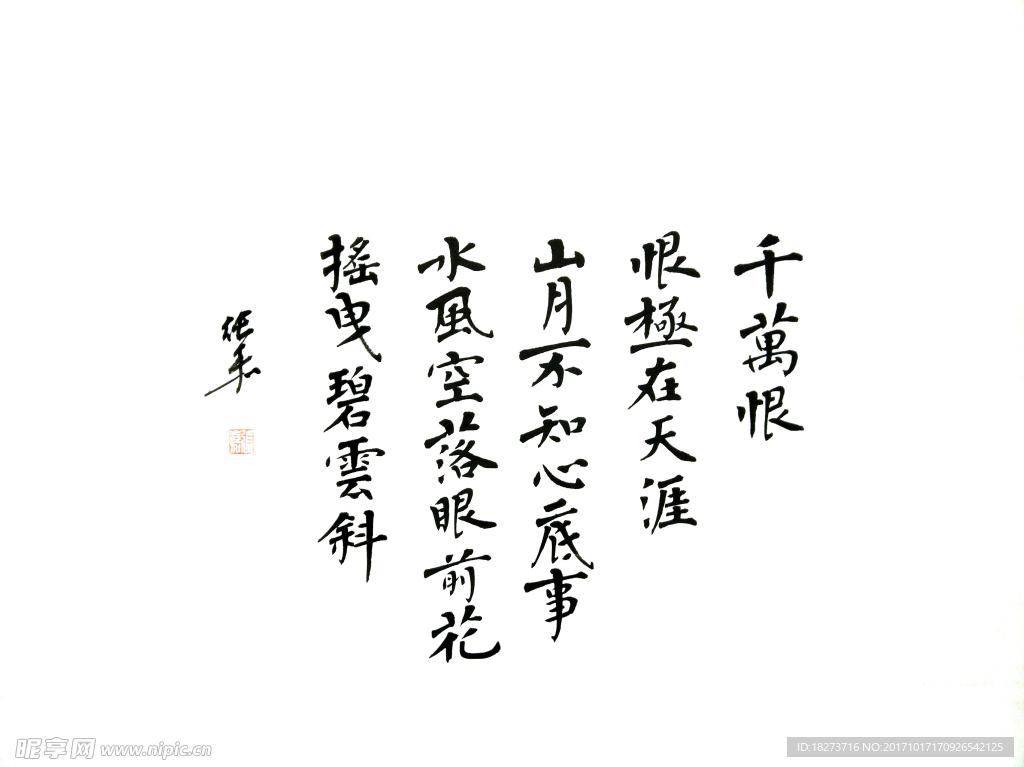 千萬恨
恨極在天涯
山月不知心底事
水風空落眼前花
搖曳碧雲斜
昵享网 www.nipic.cn
ID:18273716 NO:20171017170926542125